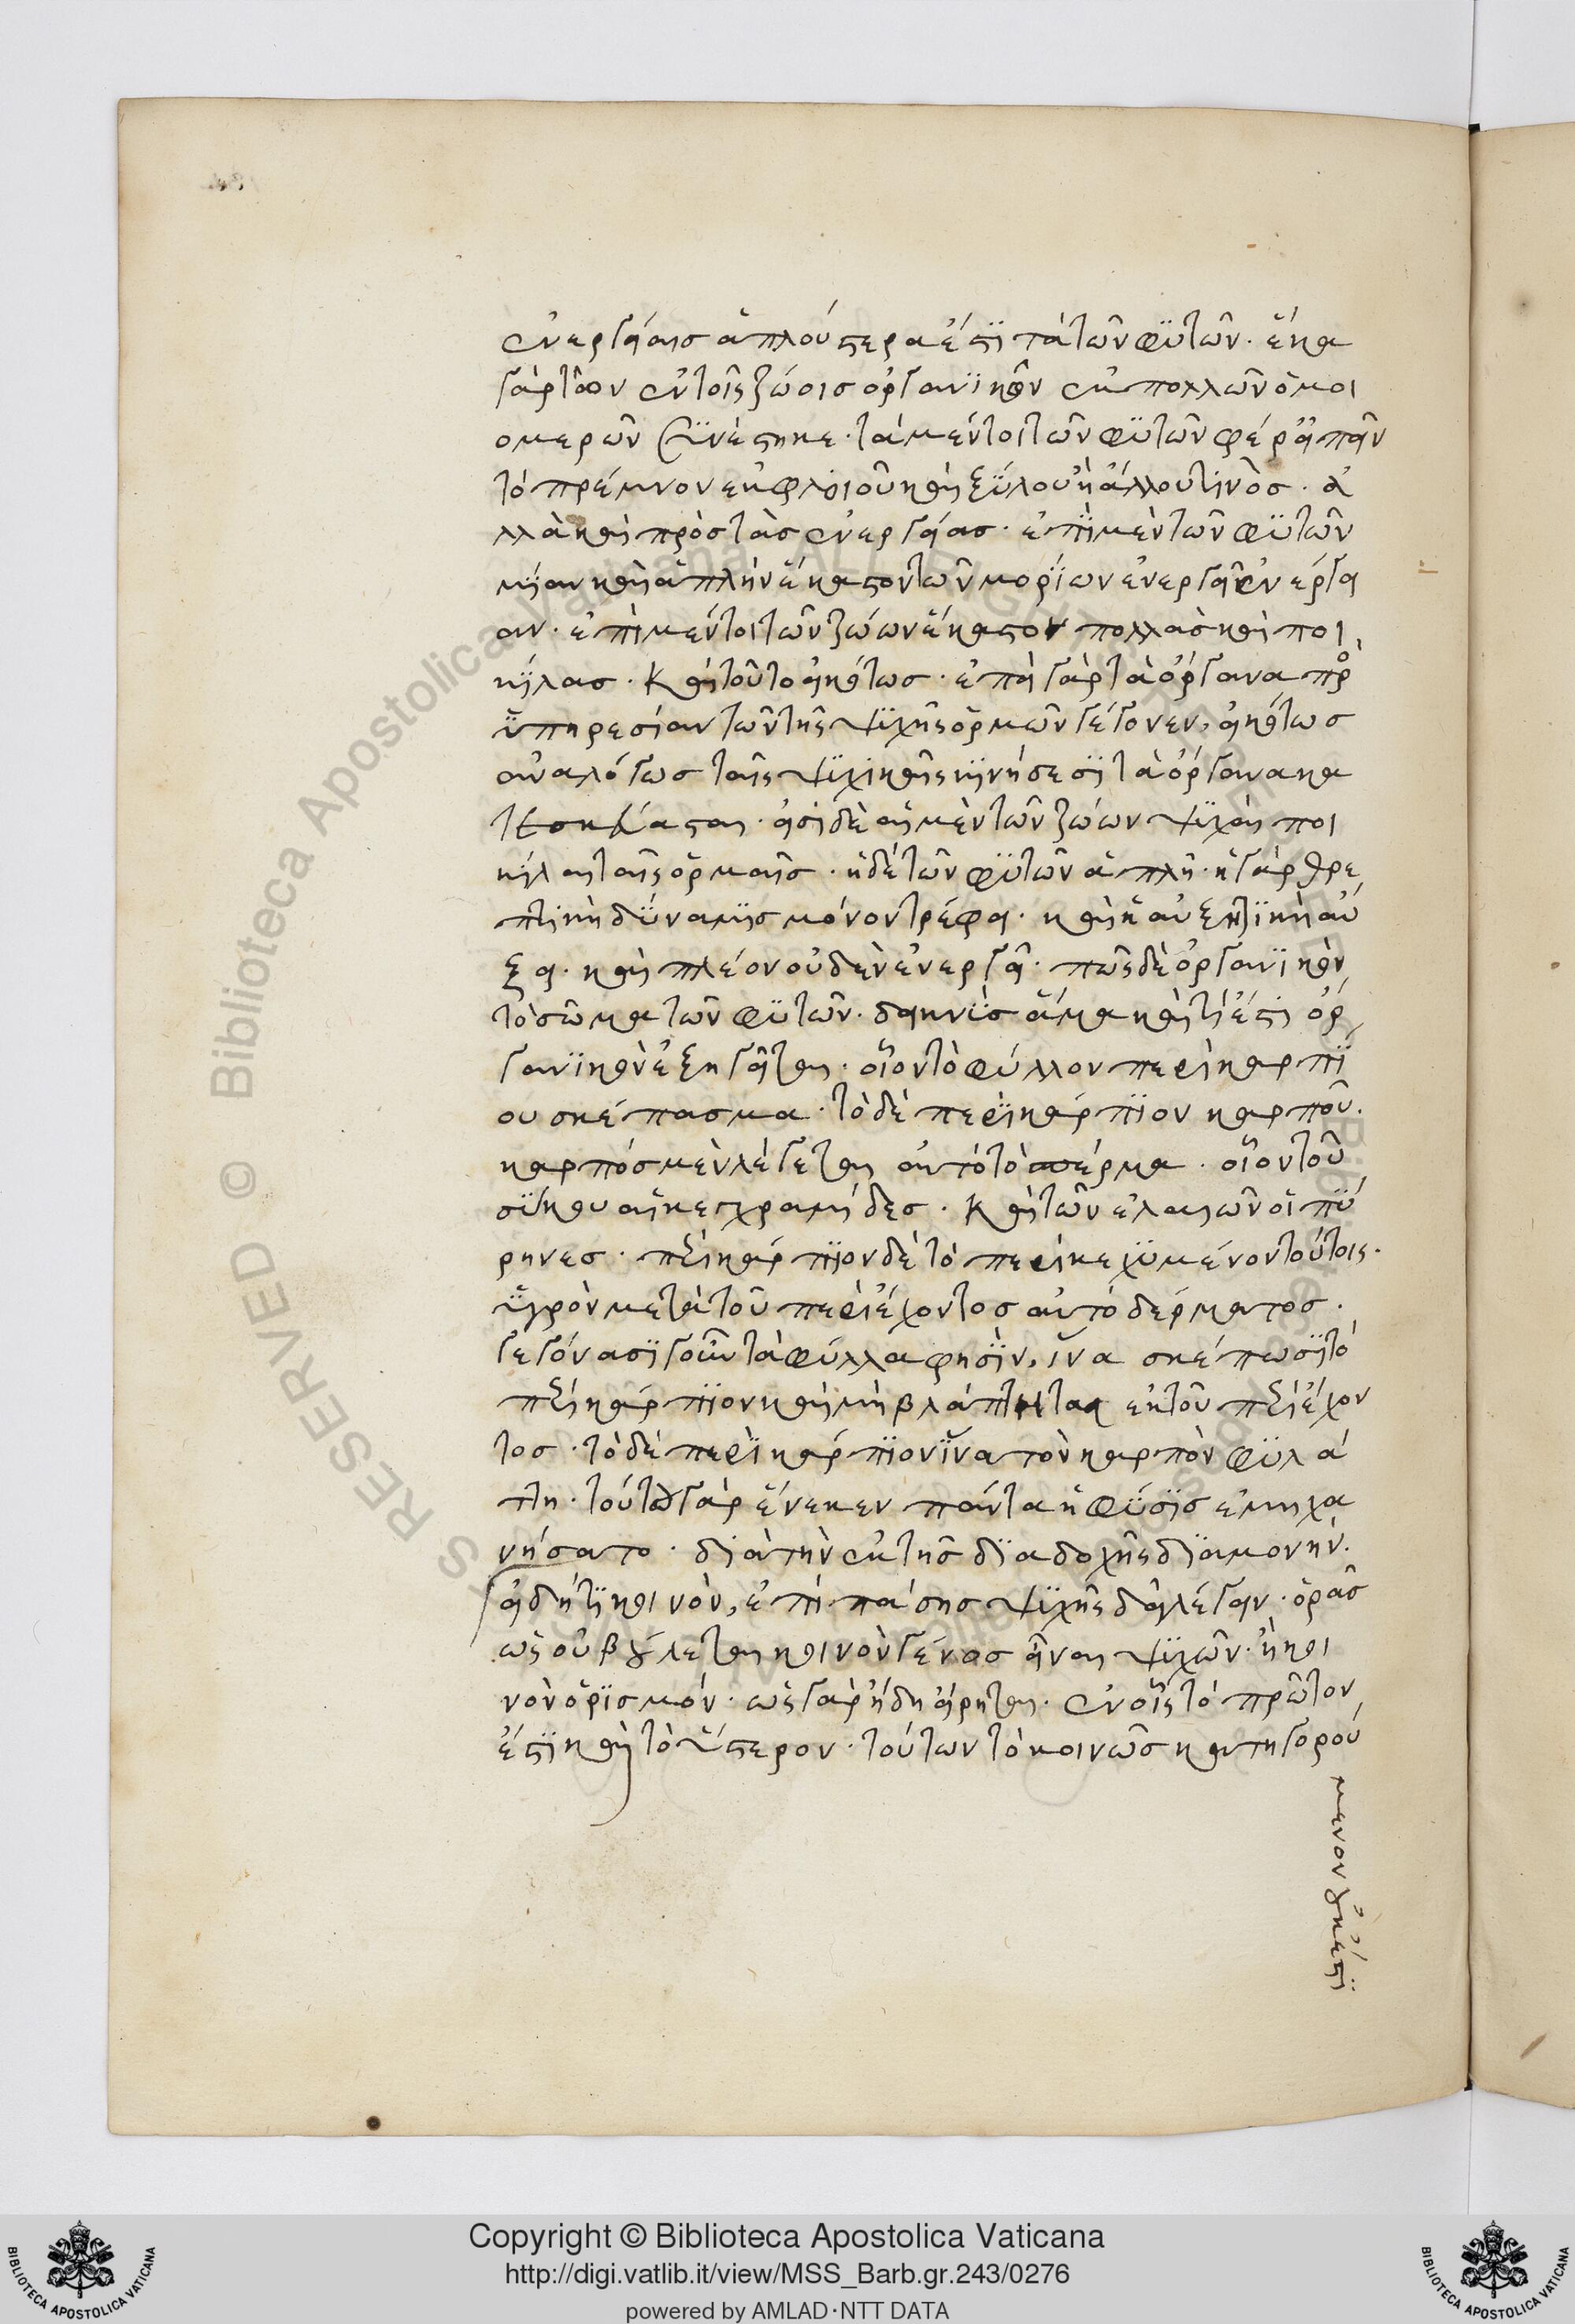 ἐνεργείαις ἁπλούστερα ἐστὶ τὰ τῶν φυτῶν. ἕκα
γὰρ τῶν ἐν τοῖς ζώοις ὀργανικῶν ἐκ πολλῶν ὁμοι
ομερῶν συνέστηκε. τὰ μέντοι τῶν φυτῶν φέρει πᾶν
τὸ πρέμνον ἐκ φλοιοῦ καὶ ξύλου ἢ ἄλλου τινός. ἀ
λλὰ καὶ πρὸς τὰς ἐνεργείας. ἐπὶ μὲν τῶν φυτῶν
μίαν καὶ ἁπλὴν ἕκαστον τῶν μορίων ἐνεργεῖ ἐνέργει
αν. ἐπὶ μέντοι τῶν ζώων ἕκαστον πολλὰς καὶ ποι
κίλας. καὶ τοῦτο εἰκότως. ἐπεὶ γὰρ τὰ ὄργανα πρὸ
ὑπηρεσίαν τῶν τῆς ψυχῆς ὁρμῶν γέγονεν, εἰκότως
ἀναλόγως ταῖς ψυχικαῖς κινήσεσι τὰ ὄργανα κα
τεσκεύασται. εἰσὶ δὲ αἱ μὲν τῶν ζώων ψυχαὶ ποι
κίλαι ταῖς ὁρμαῖς. ἡ δὲ τῶν φυτῶν ἁπλῆ. ἡ γὰρ θρε
πτικὴ δύναμις μόνον τρέφει. καὶ ἡ αὐξητικὴ αὔ
ξει. καὶ πλέον οὐδὲν ἐνεργεῖ. πῶς δὲ ὀργανικὸν
τὸ σῶμα τῶν φυτῶν. δεικνὺς ἅμα καὶ τί ἐστὶ ὀρ
γανικὸν ἐξηγεῖται. οἷον τὸ φύλλον περικαρπί
ου σκέπασμα. τὸ δὲ περικάρπιον καρποῦ.
καρπὸς μὲν λέγεται αὐτὸ τὸ σπέρμα. οἷον τοῦ
σύκου αἱ κεγχραμίδες. καὶ τῶν ἐλαιῶν οἱ πύ
ρηνες. περικάρπιον δὲ τὸ περικεχυμένον τούτοις.
ὑγρὸν μετὰ τοῦ περιέχοντος αὐτὸ δέρματος.
γεγόνασι γοῦν τὰ φύλλα φησὶν, ἵνα σκέπωσι τὸ
περικάρπιον καὶ μὴ βλάπτηται ἐκ τοῦ περιέχον
τος. τὸ δὲ περικάρπιον ἵνα τὸν καρπὸν φυλά
ττη. τούτου γὰρ ἕνεκεν πάντα ἡ φύσις ἐμηχα
νήσατο. διὰ τὴν ἐκ τῆς διαδοχῆς διαμονήν.
εἰ δή τι κοινὸν, ἐπὶ πάσης ψυχῆς δεῖ λέγειν. ὁρᾶς
ὡς οὐ βούλεται κοινὸν γένος εἶναι ψυχῶν. ἢ κοι
νὸν ὁρισμόν. ὡς γὰρ ἤδη εἴρηται. ἐν οἷς τὸ πρῶτον
ἐστὶ καὶ τὸ ὕστερον. τούτων τὸ κοινῶς κατηγορού
μενον οὐκ ἐστὶ
Copyright © Biblioteca Apostolica Vaticana
http://digi.vatlib.it/view/MSS_Barb.gr.243/0276
powered by AMLAD·NTT DATA